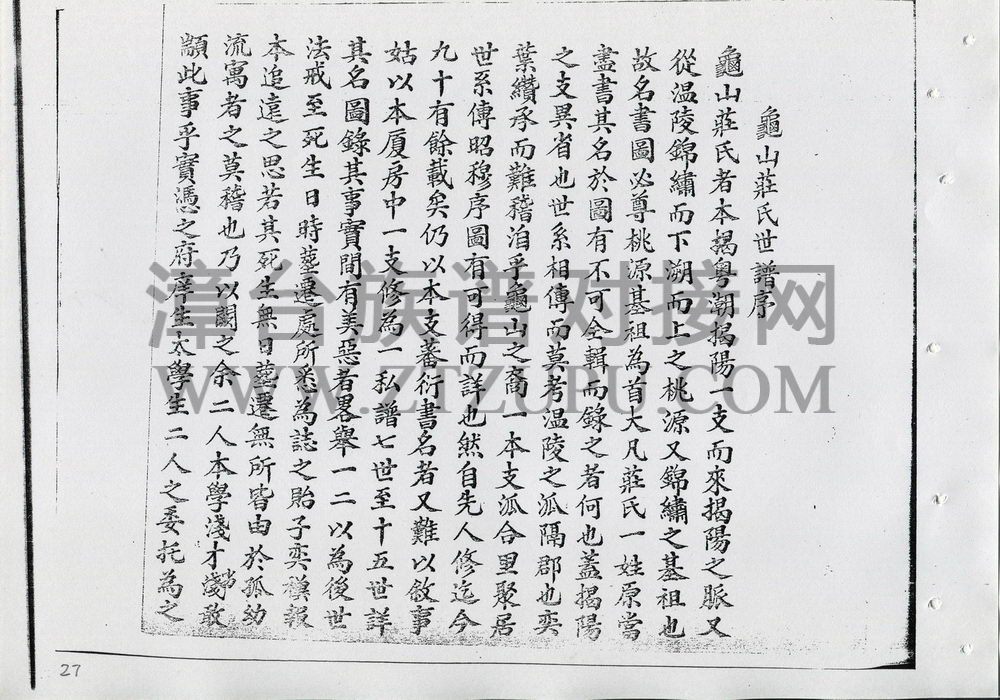 龜山莊氏世譜序
龜山莊氏者本揭粵潮揭陽一支而來揭陽之脈又
從温陵錦繡而下溯而上之桃源又錦繡之基祖也
故名書圖必尊桃源基祖為首大凡莊氏一姓原當
盡書其名於圖有不可全輯而錄之者何也蓋揭陽
之支異省也世系相傳而莫考温陵之派隔郡也奕
葉纘承而難稽洎乎龜山之裔一本支派合里聚居
世系傳昭穆序圖有可得而詳也然自先人修迄今
九十有餘載矣仍以本支蕃衍書名者又難以敘事
姑以本厦房中一支修為一私譜七世至十五世詳
其名圖錄其事實間有美惡者畧舉一二以為後世
法戒至死生日時塟遷處所悉為誌之貽子奕禩報
本追遠之思若其死生無日塟遷無所皆由於孤幼
流寓者之莫稽也乃以闕之余二人本學淺才淺敢
顓此事乎實憑之府庠生太學生二人之委托為之
漳台族谱对接网
WWW.ZTZUPU.COM
27